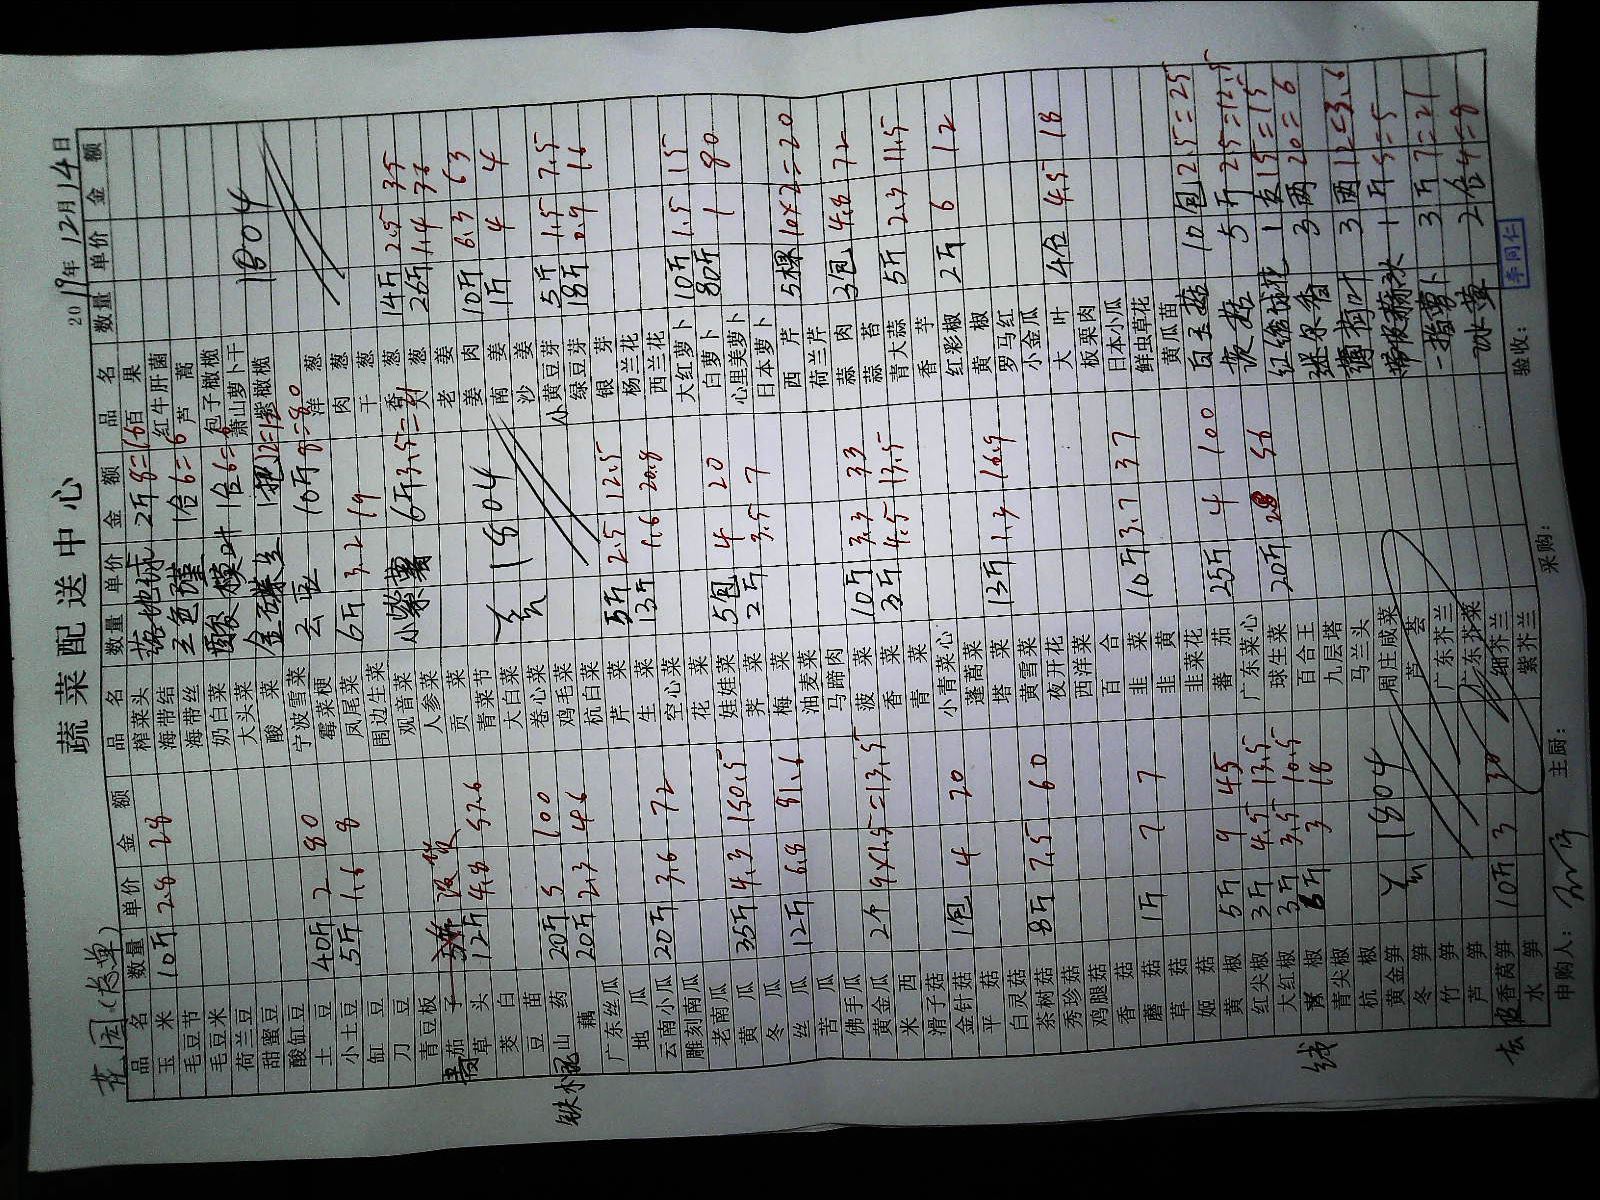 蔬菜配送中心
花园(总单)
2019年12月14日
品名 数量 单价 金额
玉米 10斤 2.8 28
毛豆节
毛豆米
荷兰豆
甜蜜豆
酸缸豆
土豆 40斤 2 80
小土豆 5斤 1.6 8
缸豆
刀豆
青豆板
茄子
草头 12斤 4.8 57.6
茭白
豆苗
铁棍山药 20斤 5 100
藕 20斤 2.3 46
广东丝瓜
地瓜
云南小瓜 20斤 3.6 72
雕刻南瓜
老南瓜
黄瓜 35斤 4.3 150.5
冬瓜
丝瓜 12斤 6.8 81.6
苦瓜
佛手瓜
黄金瓜 2个 9×1.5=13.5
米西
滑子菇
金针菇 1包 4 20
平菇
白灵菇
茶树菇 8斤 7.5 60
秀珍菇
鸡腿菇
香菇
蘑菇 1斤 7 7
草菇
姬菇
黄椒 5斤 9 45
红尖椒 3斤 4.5 13.5
大红椒 3斤 3.5 10.5
线椒 6斤 3 18
青尖椒
杭椒
黄金笋 1804
冬笋
竹笋
芦笋
香莴笋 10斤 3 30
水笋
品名 数量 单价 金额
榨菜头 2斤 8=16
海带结 1合 6=6
海带丝
奶白菜 1合 6=6
大头菜
酸菜
宁波雪菜 10斤 8=80
霉菜梗
凤尾菜 6斤 3.2 19
围边生菜
观音菜 小紫薯 6斤 3.5=21
人参菜
贡菜
青菜节
大白菜 1804
卷心菜
鸡毛菜
杭白菜
芹菜 5斤 2.5 12.5
生菜 13斤 1.6 20.8
空心菜
花菜
娃娃菜 5包 4 20
荠菜 2斤 3.5 7
梅菜
油麦菜
马蹄肉
菠菜 10斤 3.3 33
香菜 3斤 4.5 13.5
青菜
小青菜心
蓬蒿菜
塔菜 13斤 1.3 16.9
黄雪菜
夜开花
西洋菜
百合
韭菜 10斤 3.7 37
韭黄
韭菜花
蕃茄 25斤 4 100
广东菜心
球生菜 20斤 2.8 56
百合王
九层塔
马兰头
周庄咸菜
芦荟
广东芥兰
广东芥菜
细芥兰
紫芥兰
品名 数量 单价 金额
百果
红牛肝菌
芦蒿
包子橄榄 1804
萧山萝卜干
紫橄榄
洋葱
肉葱
干葱
香葱 14斤 2.5 35
大葱 26斤 1.4 36
老姜
姜肉 10斤 6.3 63
南姜 1斤 4 4
沙姜
黄豆芽 5斤 1.5 7.5
绿豆芽 18斤 0.9 16
银芽
杨兰花
西兰花
大红萝卜 10斤 1.5 15
白萝卜 80斤 1 80
心里美萝卜
日本萝卜
西芹 5棵 10×2=20
荷兰芹
蒜肉 3包 4.8 72
蒜苔
青大蒜 5斤 2.3 11.5
香芋
红彩椒 2斤 6 12
黄椒
罗马红
小金瓜
大叶 4合 4.5 18
板栗肉
日本小瓜
鲜虫草花
黄瓜苗
白玉菇 10包 2.5=25
5斤 2.5=12.5
1支 15=15
3两 20=6
薄荷叶 3两 12=3.6
1斤 5=5
萝卜 3斤 7=21
冰草 2合 4=8
申购人:
主厨:
采购:
验收: 李同仁